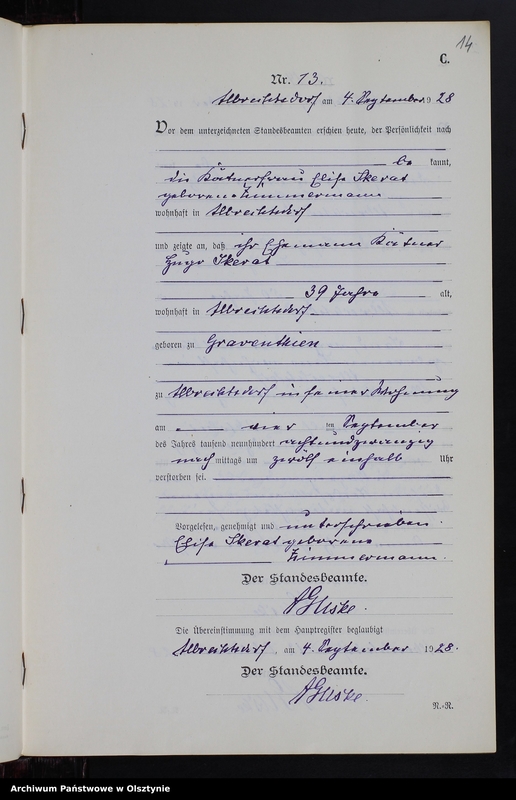 14
C.
Nr. 13.
Albrechtsdorf am 4. September 1928
Vor dem unterzeichneten Standesbeamten erschien heute, der Persönlichkeit nach
be kannt,
die Kätnerfrau Elise Skerat
geborene Zimmermann
wohnhaft in Albrechtsdorf
und zeigte an, daß ihr Ehemann Kätner
Hugo Skerat
39 Jahre alt,
wohnhaft in Albrechtsdorf
geboren zu Graventhien
zu Albrechtsdorf in seiner Wohnung
am vier ten September
des Jahres tausend neunhundert achtundzwanzig
nach mittags um zwölf einhalb Uhr
verstorben sei.
Vorgelesen, genehmigt und unterschrieben.
Elise Skerat geborene
Zimmermann.
Der Standesbeamte.
Die Übereinstimmung mit dem Hauptregister beglaubigt
Albrechtsdorf, am 4. September 1928.
Der Standesbeamte.
R.-R.
Archiwum Państwowe w Olsztynie